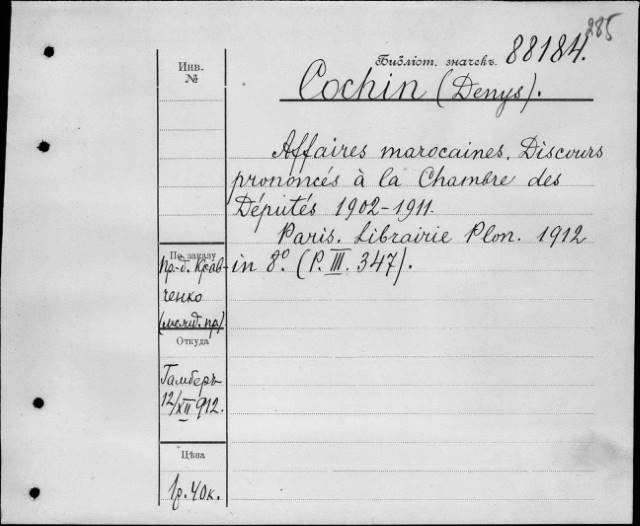 285
Инв.
№
Библіот. значекъ 88184.
Cochin (Denys).
Affaires marocaines. Discours
prononcés à la Chambre des
Députés 1902-1911.
Paris. Librairie Plon. 1912
in 8º. (P. III. 347).
По заказу
пр-д. Крав-
ченко
(межд. пр.)
Откуда
Гамберъ
12/XII 912.
Цѣна
1р. 40к.